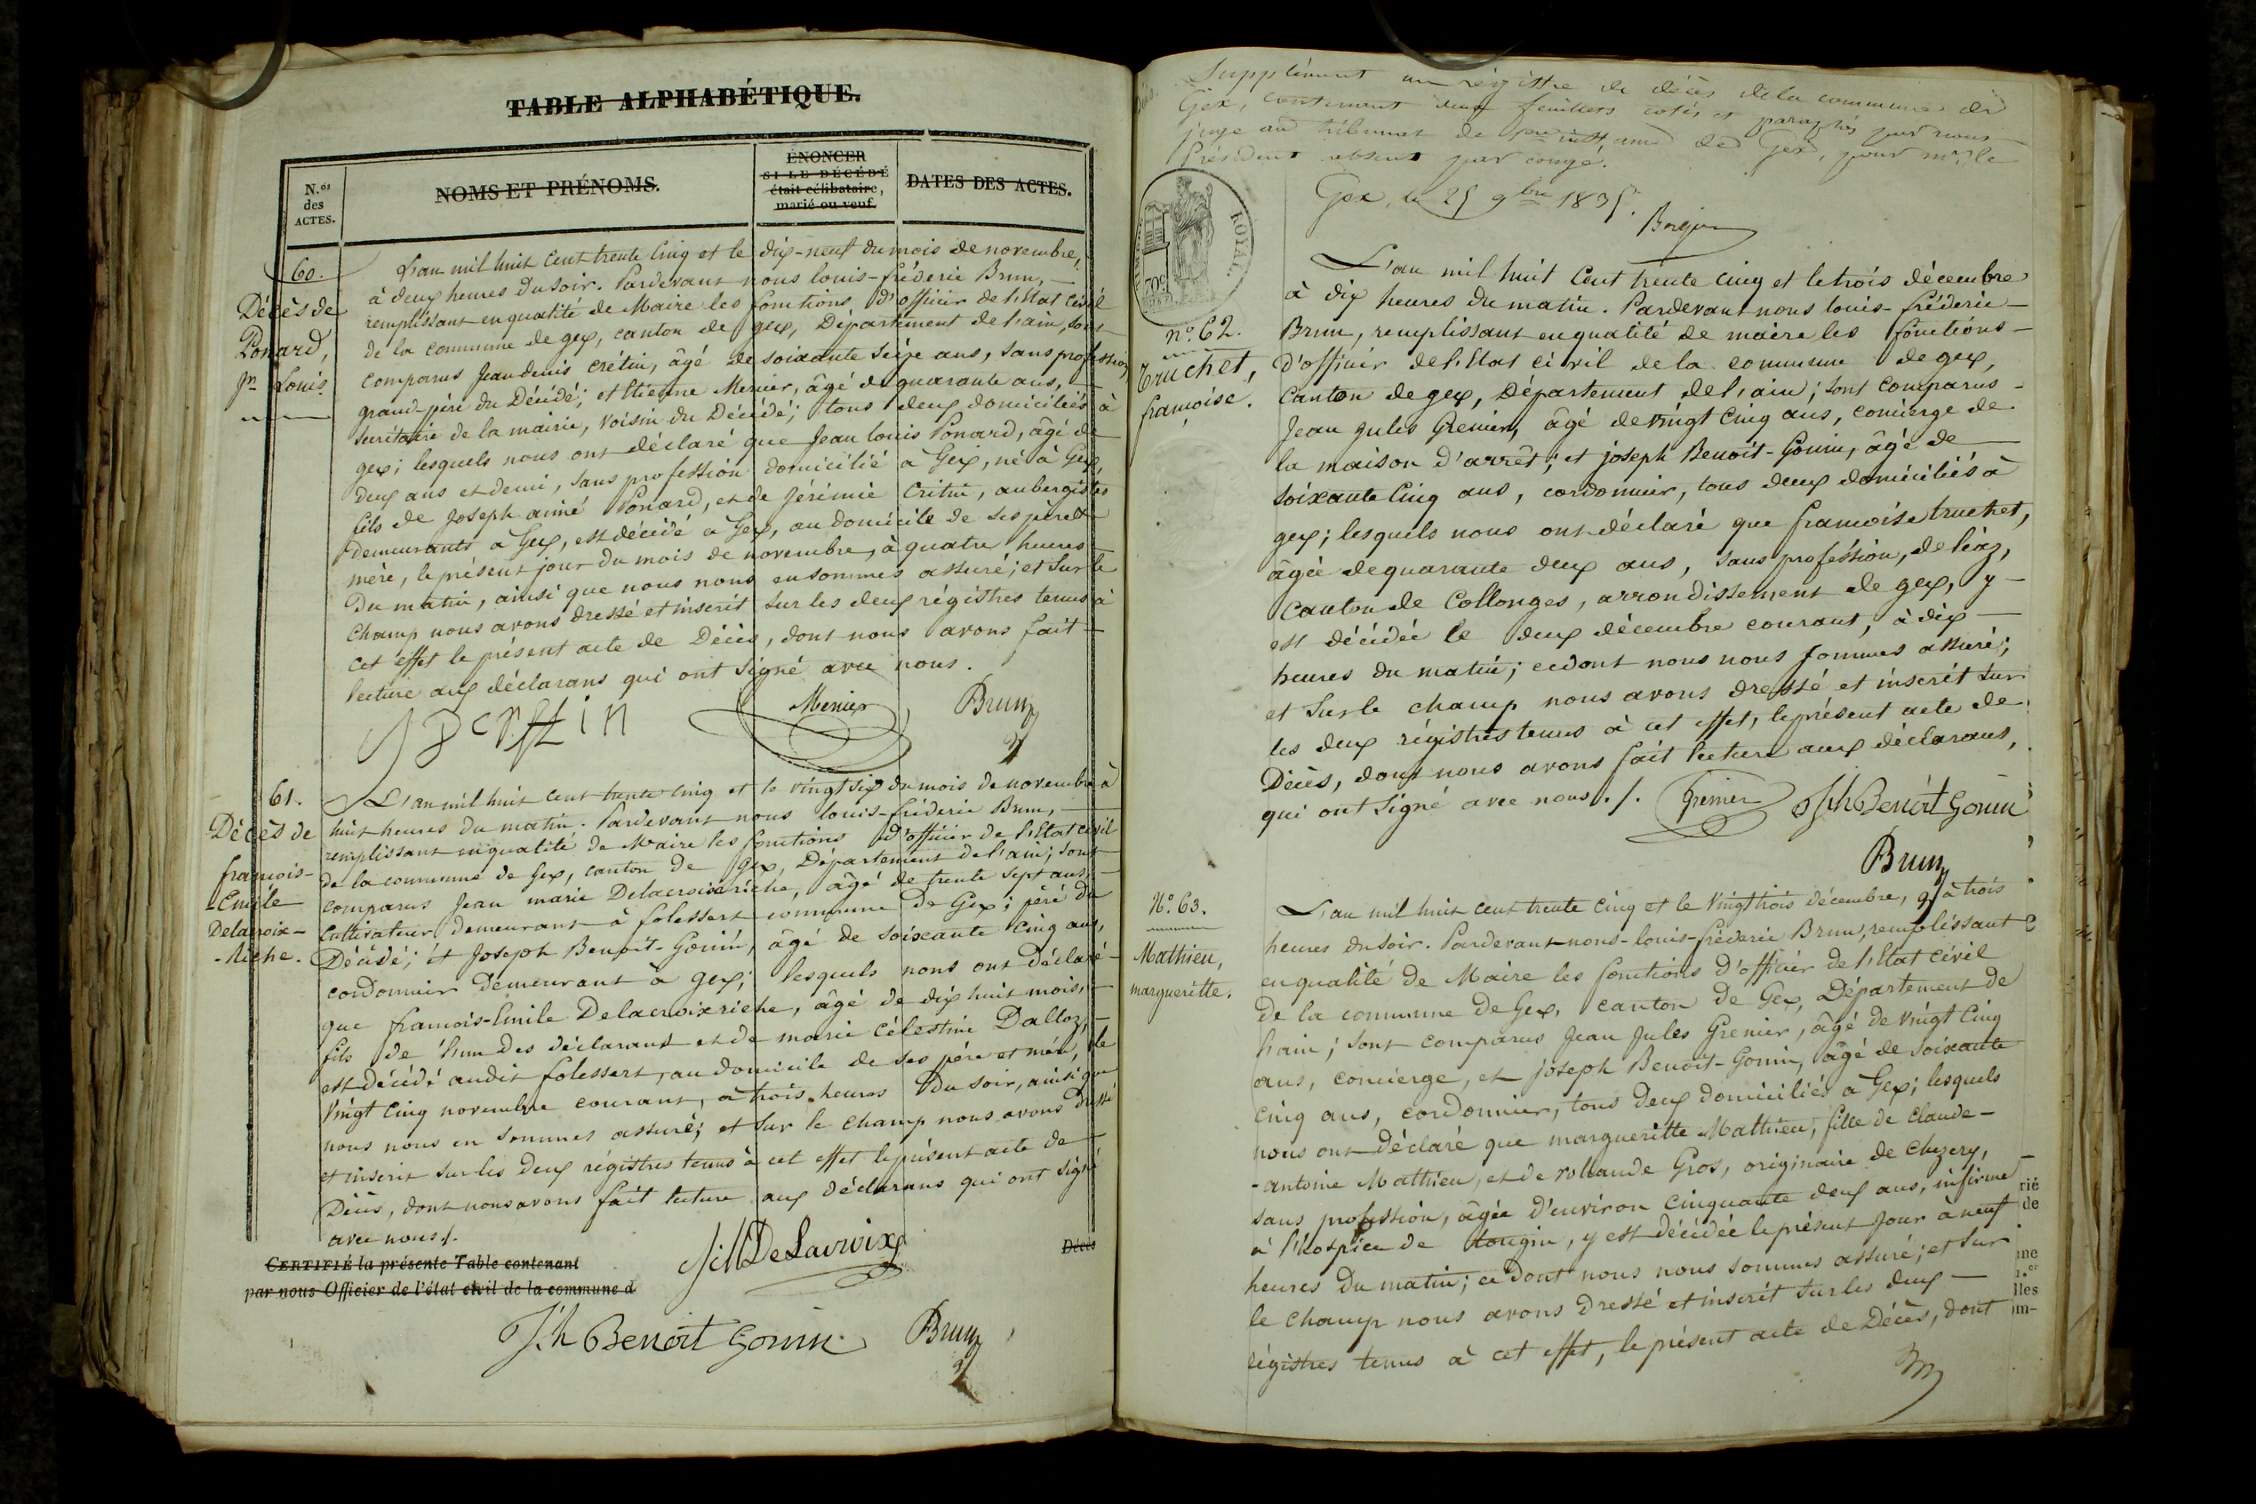 TABLE ALPHABÉTIQUE.
N.os des ACTES.
NOMS ET PRÉNOMS.
ÉNONCER
SI LE DÉCÉDÉ
était célibataire,
marié ou veuf.
DATES DES ACTES.
60.
Décès de
Ponard,
Jn Louis.
L'an mil huit cent trente cinq et le dix-neuf du mois de novembre,
à deux heures du soir. Pardevant nous louis-fréderic Brun,
remplissant en qualité de Maire les fonctions d'officier de l'Etat civil
de la commune de gex, canton de gex, Département de l'ain, sont
comparus Jean denis crétin, âgé de soixante seize ans, sans profession,
grand-père du Décédé; et Etienne Menier, âgé de quarante ans,
secrétaire de la mairie, voisin du Décédé; tous deux domiciliés à
gex; lesquels nous ont déclaré que Jean louis Ponard, âgé de
deux ans et demi, sans profession domicilié à Gex, né à Gex,
fils de Joseph aimé Ponard, et de Jérémie Crétin, aubergistes
demeurants à Gex, est décédé à Gex, au domicile de ses père et
mère, le présent jour du mois de novembre, à quatre heures
du matin, ainsi que nous nous en sommes assuré; et sur le
champ nous avons dressé et inscrit sur les deux régistres tenus à
cet effet le présent acte de Décès, dont nous avons fait
lecture aux déclarans qui ont signé avec nous.
Menier
Brun
61.
Décès de
françois-
Emile
Delacroix-
-Riche.
L'an mil huit cent trente cinq et le vingt six du mois de novembre à
huit heures du matin. Pardevant nous louis-fréderic Brun,
remplissant en qualité de Maire les fonctions d'officier de l'Etat civil
de la commune de Gex, canton de Gex, Département de l'ain; sont
comparus Jean marie Delacroixriche, âgé de trente sept ans,
cultivateur demeurant à folessert commune de Gex; père du
Décédé; et Joseph Benoit-Gonin, âgé de soixante cinq ans,
cordonnier demeurant à gex; lesquels nous ont déclaré
que françois-Emile Delacroixriche, âgé de dix huit mois,
fils de l'un des déclarans et de marie célestine Dalloz,
est décédé audit folessert, au domicile de ses père et mère, le
vingt cinq novembre courant, à trois heures du soir, ainsi que
nous nous en sommes assuré; et sur le champ nous avons dressé
et inscrit sur les deux régistres tenus à cet effet le présent acte de
Décès, dont nous avons fait lecture aux déclarans qui ont signé
avec nous./.
CERTIFIÉ la présente Table contenant
par nous Officier de l'état civil de la commune d
Décès
JM DeLacroix
Jh Benoit Gonin
Brun
Supplément au régistre de décès de la commune de
Gex, contenant deux feuillets cotés et paraphés par nous
juge au tribunal de pre instance de Gex, pour mr le
Président absent par congé.
Gex, le 25 9bre 1835.
ROYAL.
70c.
no. 62.
Truchet,
françoise.
L'an mil huit cent trente cinq et le trois décembre
à dix heures du matin. Pardevant nous louis-fréderic
Brun, remplissant en qualité de maire les fonctions
d'officier de l'Etat civil de la commune de gex,
canton de gex, Département de l'ain; sont comparus
Jean Jules Grenier, âgé de vingt cinq ans, concierge de
la maison d'arrêt; et joseph Benoit-Gonin, âgé de
soixante cinq ans, cordonnier, tous deux domiciliés à
gex; lesquels nous ont déclaré que françoise truchet,
âgée de quarante deux ans, sans profession, de léaz,
canton de Collonges, arrondissement de gex, y
est décédée le deux décembre courant, à dix
heures du matin; ce dont nous nous sommes assuré;
et sur le champ nous avons dressé et inscrit sur
les deux régistres tenus à cet effet, le présent acte de
Décès, dont nous avons fait lecture aux déclarans,
qui ont signé avec nous./.
Grenier
Jph Benoit Gonin
Brun
No. 63.
Mathieu,
marguerite.
L'an mil huit cent trente cinq et le vingt trois décembre, à trois
heures du soir. Pardevant-nous-louis-fréderic Brun, remplissant
en qualité de Maire les fonctions d'officier de l'Etat civil
de la commune de Gex, canton de Gex, Département de
l'ain; sont comparus Jean Jules Grenier, âgé de vingt cinq
ans, concierge, et joseph Benoit-Gonin, âgé de soixante
cinq ans, cordonnier, tous deux domiciliés à Gex; lesquels
nous ont déclaré que margueritte Mathieu, fille de Claude-
-antoine Mathieu, et de rollande Gros, originaire de Chezery,
sans profession, âgée d'environ cinquante deux ans, infirme
à l'hospice de tougin, y est décédée le présent jour à neuf
heures du matin; ce dont nous nous sommes assuré; et sur
le champ nous avons dressé et inscrit sur les deux
régistres tenus à cet effet, le présent acte de Décès, dont
rié
de
me
1.er
lles
om-